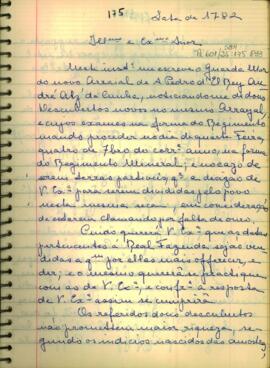 175 Data de 1782
Illmo e Exmo Snor.
Neste instte me escreve o Guarda Mor
do novo Arraial de S. Pedro d'El Rey, An
dré Alz' da Cunha, noticiando-me de dous
Descubertos novos no mesmo Arrayal,
e cujos exames na forma do Regimento
mandô proceder no dia de quarta-Feira,
quatro de 7bro do corre anno, na forma
do Regimento Mineral; e no cazo de
serem terras partiveis, qr. a decizão de
V. Exa para serem divididas pelo povo
nesta mesma , em consideração
de estarem clamando por falta de ouro.
Cuido querer V. Exa que as datas
pertencentes á Real Fazenda sejão ven
didas a qm por ellas mais offerecer, e
der; e o mesmo quererá se practique
com as de V. Exa; e confe a resposta
de V. Exa assim se cumprirá.
Os referidos dous descubertos
não promettem maior riqueza, se
gundo os indicios nascidos das amostras,